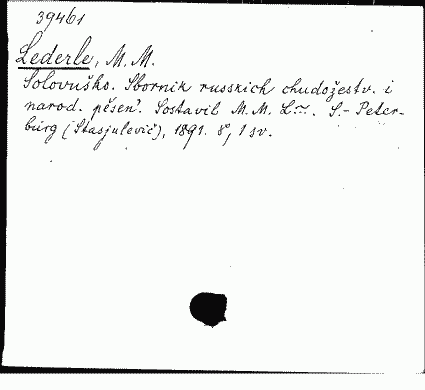 39461
Lederle, M. M.
Solovuško. Sbornik russkich chudožestv. i
narod. pěseń. Sostavil M. M. L~. S.-Peter-
burg (Stasjulevič), 1891. 8°, 1 sv.